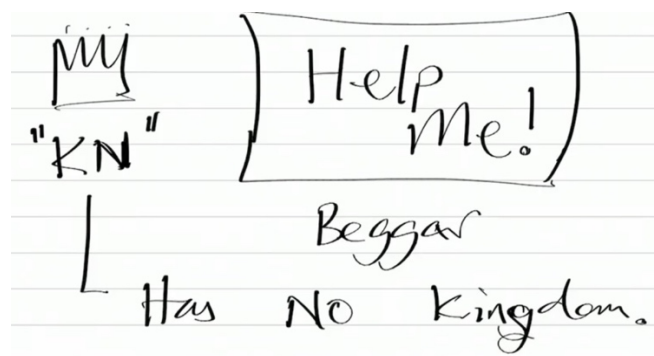 "KN"
Help
Me!
Beggar
Has No Kingdom.